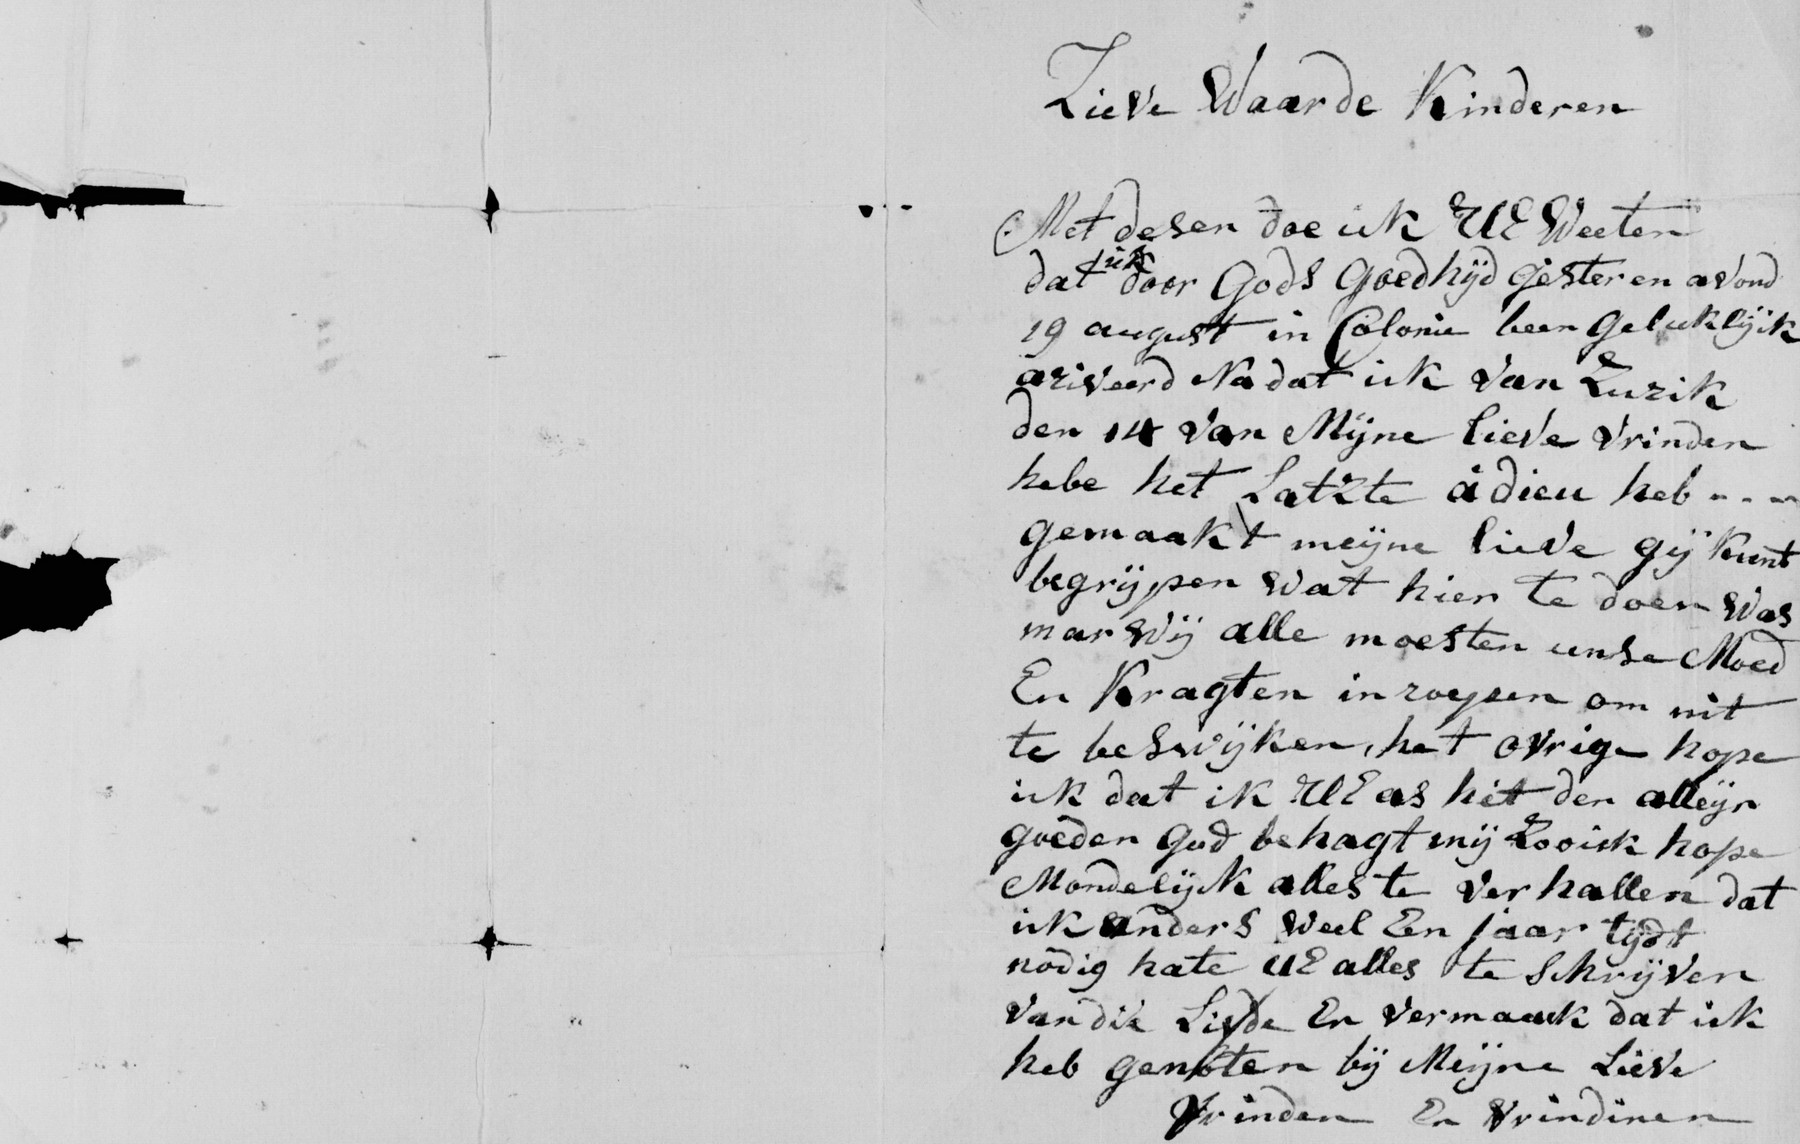 Lieve Waarde Kinderen
Met desen doe ick UE Weeten
dat ick door Gods goedhÿd gesteren avond
19 august in Colonie been geluklÿik
ariveerd Na dat ick van Zurik
den 14 van Mÿne lieve vrinden
hebe het Latzte adieu heb - - -
gemaakt meijne lieve gÿ kunt
begrÿpen wat hier te doen was
mar wÿ alle moesten unse Moed
En Kragten in roepen om nit
te beswÿken, het ovrige hope
ick dat ik UE as het den alleÿn
goeden God behagt mÿ Zooick hope
Mondelÿck alles te verhallen dat
ick anders weel Een jaar tÿdt
nodig hate UE alles te schrÿven
van die Liefde En vermaack dat ick
heb genoten bÿ Meÿne Lieve
Vrinden En vrindinen